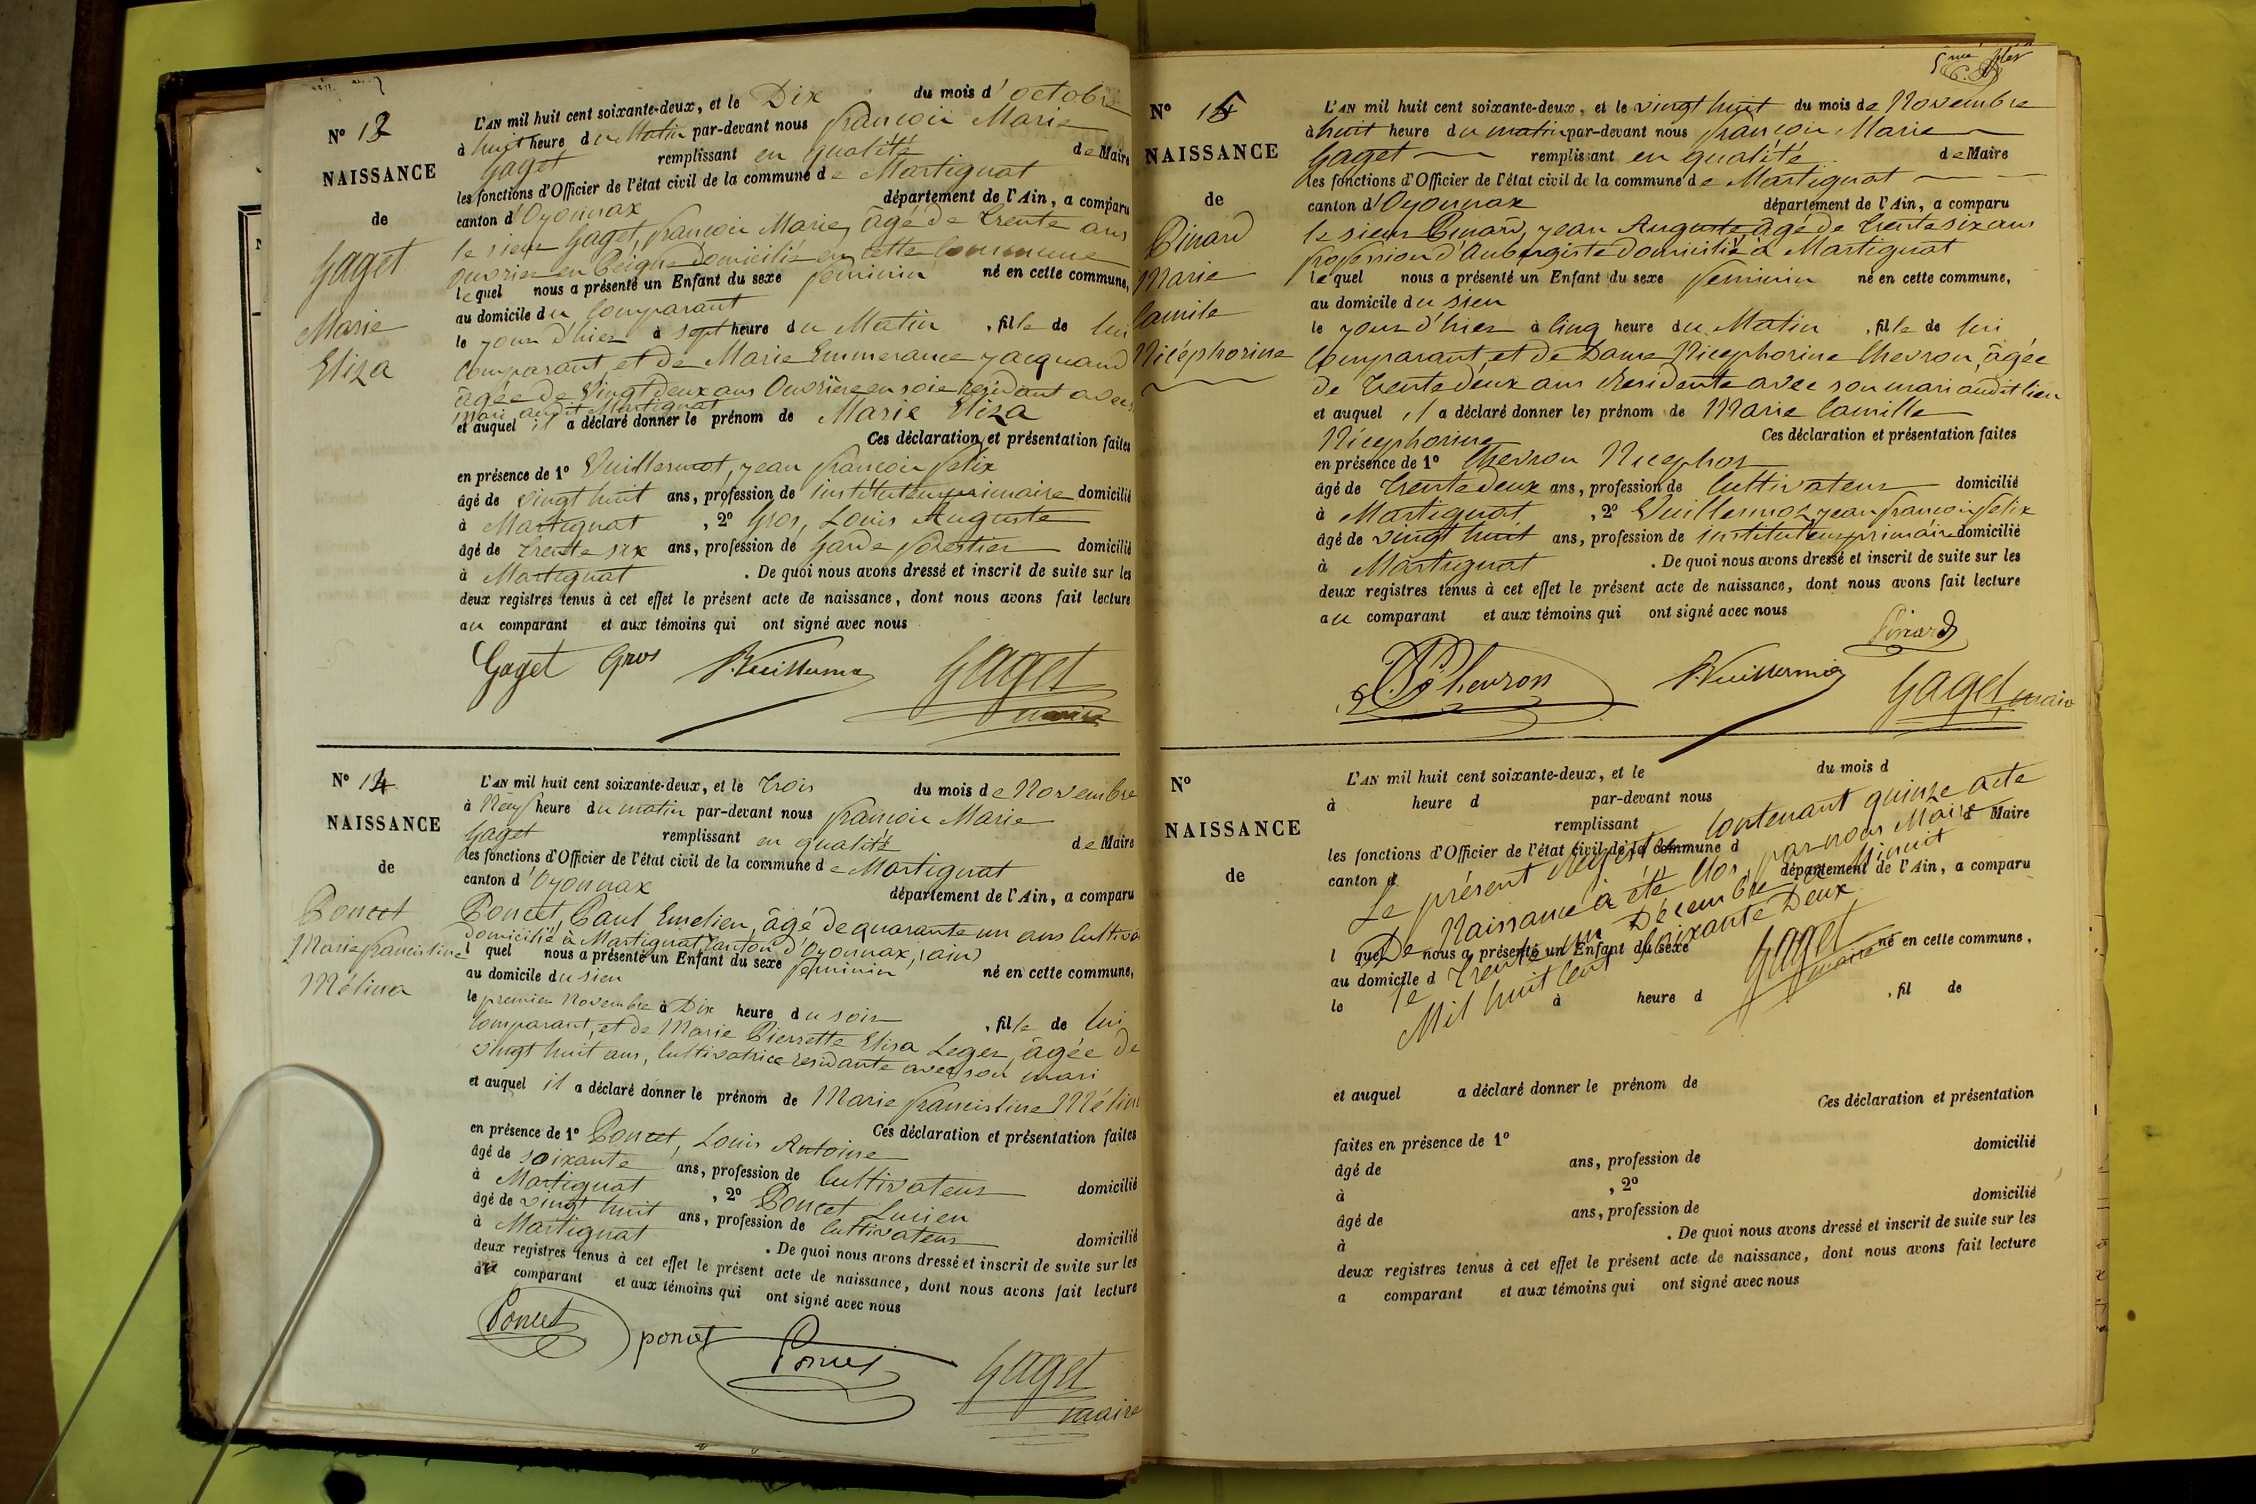 N° 13
NAISSANCE
de
Gaget
Marie
Eliza
L'AN mil huit cent soixante-deux, et le Dix du mois d'octobre
à huit heure du Matin par-devant nous françois Marie
Gaget remplissant en qualité de Maire
les fonctions d'Officier de l'état civil de la commune de Martignat
canton d'Oyonnax département de l'Ain, a comparu
le sieur Gaget, françois Marie, âgé de trente ans
ouvrier en Peigne domicilié en cette Commune
lequel nous a présenté un Enfant du sexe feminin né en cette commune,
au domicile du Comparant
le jour d'hier à sept heure du Matin , fille de lui
Comparant, et de Marie Emmerance jacquand
âgée de Vingt deux ans Ouvrière en soie residant avec
mari audit Martignat
et auquel il a déclaré donner le prénom de Marie Eliza
Ces déclaration et présentation faites
en présence de 1° Vuillermot, jean françois felix
âgé de vingt huit ans, profession de instituteur primaire domicilié
à Martignat , 2° Gros, Louis Auguste
âgé de trente six ans, profession de Garde forestier domicilié
à Martignat . De quoi nous avons dressé et inscrit de suite sur les
deux registres tenus à cet effet le présent acte de naissance, dont nous avons fait lecture
au comparant et aux témoins qui ont signé avec nous
Gaget Gros Vuillermoz Gaget
maire
N° 14
NAISSANCE
de
Poncet
Marie francistine
Mélina
L'AN mil huit cent soixante-deux, et le trois du mois de Novembre
à Neuf heure du matin par-devant nous françois Marie
Gaget remplissant en qualité de Maire
les fonctions d'Officier de l'état civil de la commune de Martignat
canton d'Oyonnax département de l'Ain, a comparu
Poncet, Paul Emelien, âgé de quarante un ans Cultiva
domicilié à Martignat Canton d'Oyonnax, (ain)
l quel nous a présenté un Enfant du sexe feminin né en cette commune,
au domicile du sien
le premier Novembre à Dix heure du soir , fille de lui
Comparant, et de Marie Pierrette Elisa Leger, âgée de
vingt huit ans, Cultivatrice residante avec son mari
et auquel il a déclaré donner le prénom de Marie francistine Mélina
Ces déclaration et présentation faites
en présence de 1° Poncet, Louis Antoine
âgé de soixante ans, profession de Cultivateur domicilié
à Martignat , 2° Poncet Lucien
âgé de vingt huit ans, profession de Cultivateur domicilié
à Martignat . De quoi nous avons dressé et inscrit de suite sur les
deux registres tenus à cet effet le présent acte de naissance, dont nous avons fait lecture
au comparant et aux témoins qui ont signé avec nous
Poncet poncet Poncet Gaget
maire
5me
N° 15
NAISSANCE
de
Pinard
Marie
Camile
Nicéphorine
L'AN mil huit cent soixante-deux, et le vingt huit du mois de Novembre
à huit heure du matin par-devant nous françois Marie
Gaget remplissant en qualité de Maire
les fonctions d'Officier de l'état civil de la commune de Martignat
canton d'Oyonnax département de l'Ain, a comparu
le sieur Pinard, jean Auguste, âgé de trente six ans
profession d'Aubergiste domicilié à Martignat
lequel nous a présenté un Enfant du sexe feminin né en cette commune,
au domicile du sien
le jour d'hier à Cinq heure du Matin , fille de lui
Comparant, et de Dame Nicephorine Chevron, âgée
de trente deux ans residente avec son mari audit lieu
et auquel il a déclaré donner les prénom de Marie Camille
Nicephorine Ces déclaration et présentation faites
en présence de 1° Chevron Nicephor
âgé de trente deux ans, profession de Cultivateur domicilié
à Martignat , 2° Vuillermoz jean françois felix
âgé de vingt huit ans, profession de instituteur primaire domicilié
à Martignat . De quoi nous avons dressé et inscrit de suite sur les
deux registres tenus à cet effet le présent acte de naissance, dont nous avons fait lecture
au comparant et aux témoins qui ont signé avec nous
Pinard
Chevron Vuillermoz Gaget maire
N°
NAISSANCE
de
L'AN mil huit cent soixante-deux, et le du mois d
à heure d par-devant nous
remplissant d Maire
les fonctions d'Officier de l'état civil de la commune d
canton d département de l'Ain, a comparu
l quel nous a présenté un Enfant du sexe né en cette commune,
au domicile d
le à heure d , fil de
Le présent Registre Contenant quinze acte
De Naissance à été Clos, par nous Maire
le trente un Décembre a Minuit
Mil huit Cent soixante Deux
Gaget
maire
et auquel a déclaré donner le prénom de
Ces déclaration et présentation
faites en présence de 1°
âgé de ans, profession de domicilié
à , 2°
âgé de ans, profession de domicilié
à . De quoi nous avons dressé et inscrit de suite sur les
deux registres tenus à cet effet le présent acte de naissance, dont nous avons fait lecture
a comparant et aux témoins qui ont signé avec nous